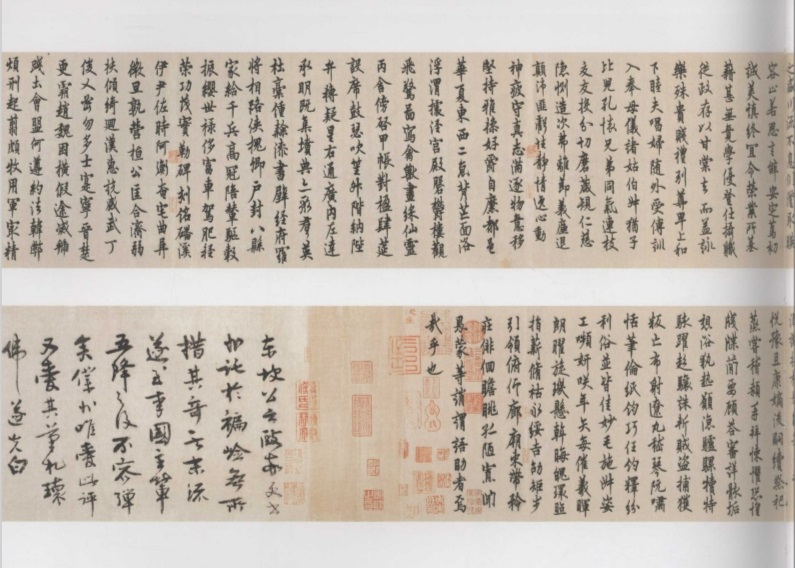 容止若思言辭安定篤初
誠美慎終宜令榮業所基
藉甚無竟學優登仕攝職
從政存以甘棠去而益詠
樂殊貴賤禮別尊卑上和
下睦夫唱婦隨外受傅訓
入奉母儀諸姑伯叔猶子
比兒孔懷兄弟同氣連枝
交友投分切磨箴規仁慈
隱惻造次弗離節義廉退
顛沛匪虧性靜情逸心動
神疲守真志滿逐物意移
堅持雅操好爵自縻都邑
華夏東西二京背芒面洛
浮渭據涇宮殿盤鬱樓觀
飛驚圖寫禽獸畫綵仙靈
丙舍傍啓甲帳對楹肆筵
設席鼓瑟吹笙升階納陛
弁轉疑星右通廣內左達
承明既集墳典亦聚群英
杜稾鍾隸漆書壁經府羅
將相路俠槐卿戶封八縣
家給千兵高冠陪輦驅轂
振纓世祿侈富車駕肥輕
策功茂實勒碑刻銘磻溪
伊尹佐時阿衡奄宅曲阜
微旦孰營桓公匡合濟弱
扶傾綺迴漢惠說感武丁
俊乂密勿多士寔寧晉楚
更霸趙魏困橫假途滅虢
踐土會盟何遵約法韓弊
煩刑起翦頗牧用軍宗精
悅豫且康嫡後嗣續祭祀
蒸嘗稽顙再拜悚懼恐惶
牋牒簡要顧答審詳骸垢
想浴執熱願涼驢騾犢特
駭躍超驤誅斬賊盜捕獲
叛亡布射遼丸嵇琴阮嘯
恬筆倫紙鈞巧任釣釋紛
利俗並皆佳妙毛施淑姿
工嚬妍咲年矢每催羲暉
朗曜旋璣懸斡晦魄環照
指薪脩祜永綏吉劭矩步
引領俯仰廊廟束帶矜
莊徘徊瞻眺孤陋寡聞
愚蒙等誚謂語助者焉
哉乎也
東坡公之
措其奇
五降之後不容彈
矣僕亦唯愛此評
又愛其